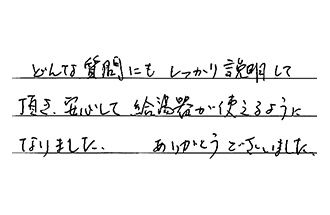 どんな質問にもしっかり説明して
頂き、安心して給湯器が使えるように
なりました、 ありがとうございました